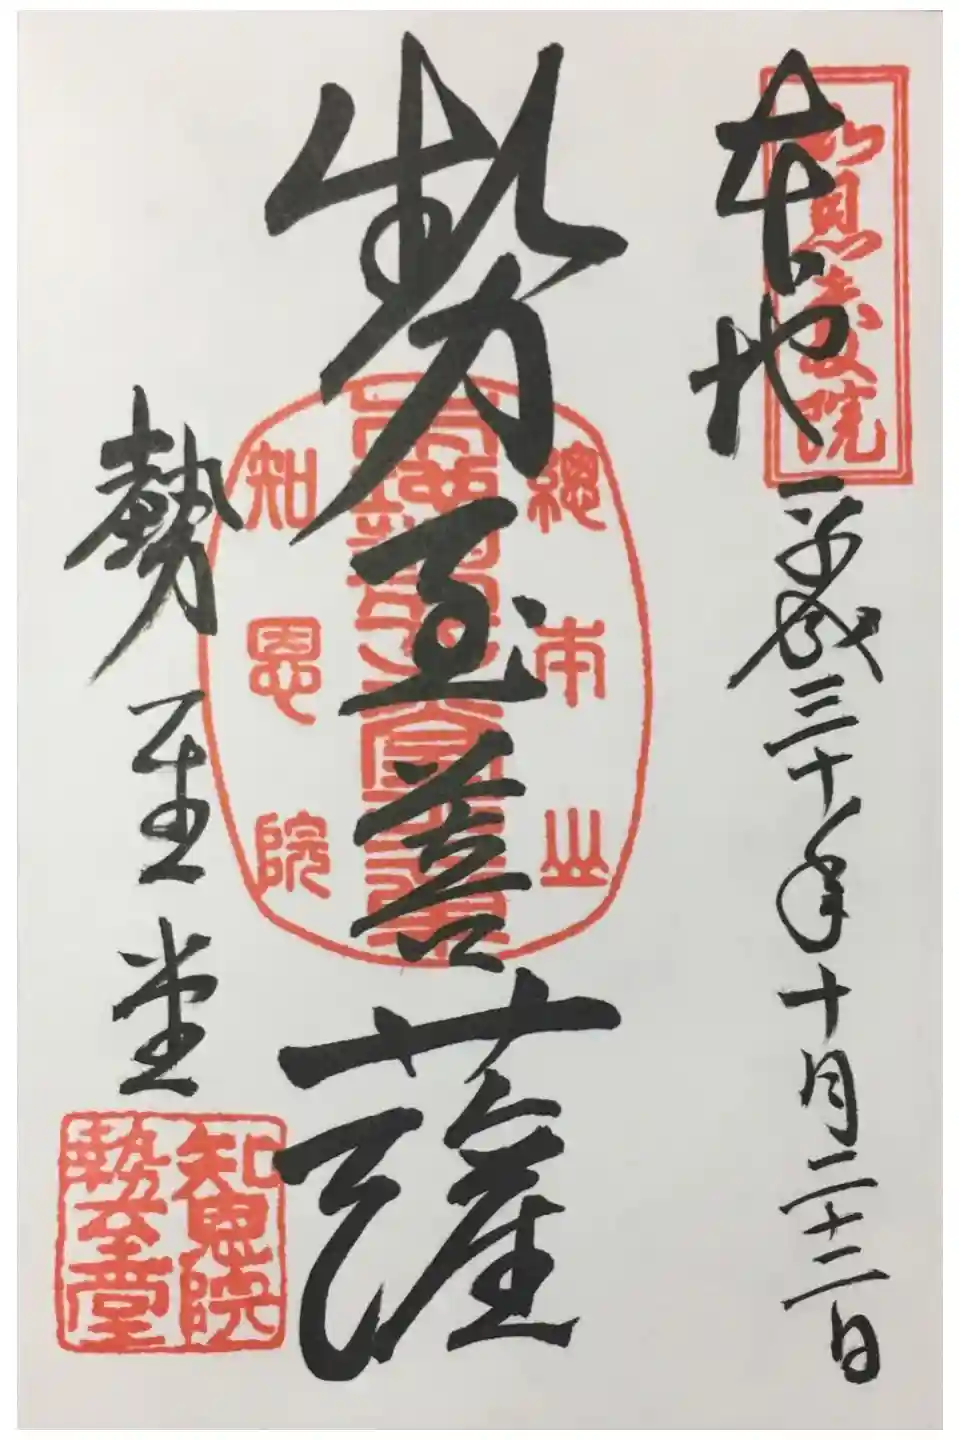 本地
平成三十年十月二十二日
勢至菩薩
勢至堂
總本山
知恩院
知恩院
勢至堂